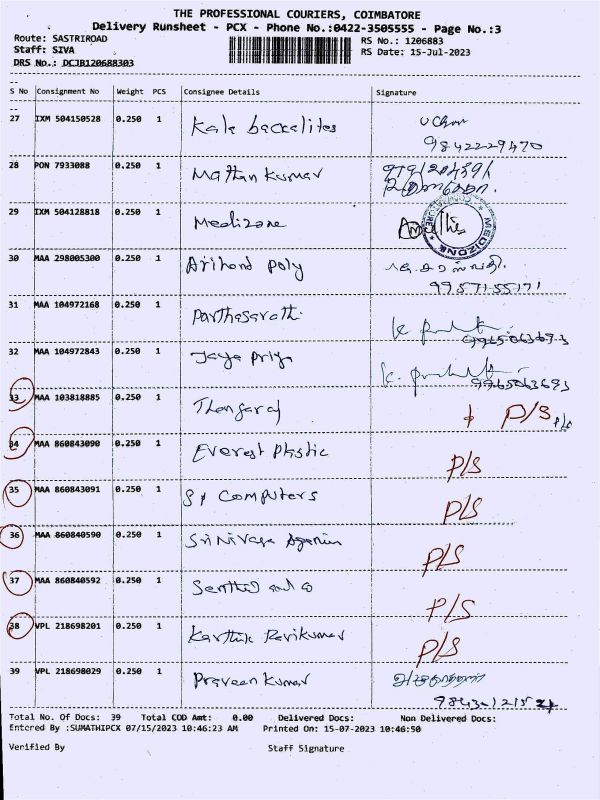 THE PROFESSIONAL COURIERS, COIMBATORE
Delivery Runsheet - PCX - Phone No.:0422-3505555 - Page No.:3
Route: SASTRIROAD
RS No.: 1206883
Staff: SIVA
RS Date: 15-Jul-2023
DRS No.: DCJB120688303
S No Consignment No Weight PCS Consignee Details Signature
27 IXM 504150528 0.250 1 Kala backalites
9842229470
28 PON 7933088 0.250 1 Mattan Kumar
29 IXM 504128818 0.250 1 Medizone
MEDIZONE
30 MAA 298005300 0.250 1 Arihand poly
9957155171
31 MAA 104972168 0.250 1 Parthasarathi
9965063693
32 MAA 104972843 0.250 1 Jaya Priya
9965063693
33 MAA 103818885 0.250 1 Thangaraj P/S
34 MAA 860843090 0.250 1 Everest Plastic P/S
35 MAA 860843091 0.250 1 Computers P/S
36 MAA 860840590 0.250 1 Srinivasa P/S
37 MAA 860840592 0.250 1 Senthil and co P/S
38 VPL 218698201 0.250 1 Karthik Ravikumar P/S
39 VPL 218698029 0.250 1 Praveen Kumar
Total No. Of Docs: 39 Total COD Amt: 0.00 Delivered Docs: Non Delivered Docs:
Entered By :SUMATHIPCX 07/15/2023 10:46:23 AM Printed On: 15-07-2023 10:46:50
Verified By Staff Signature